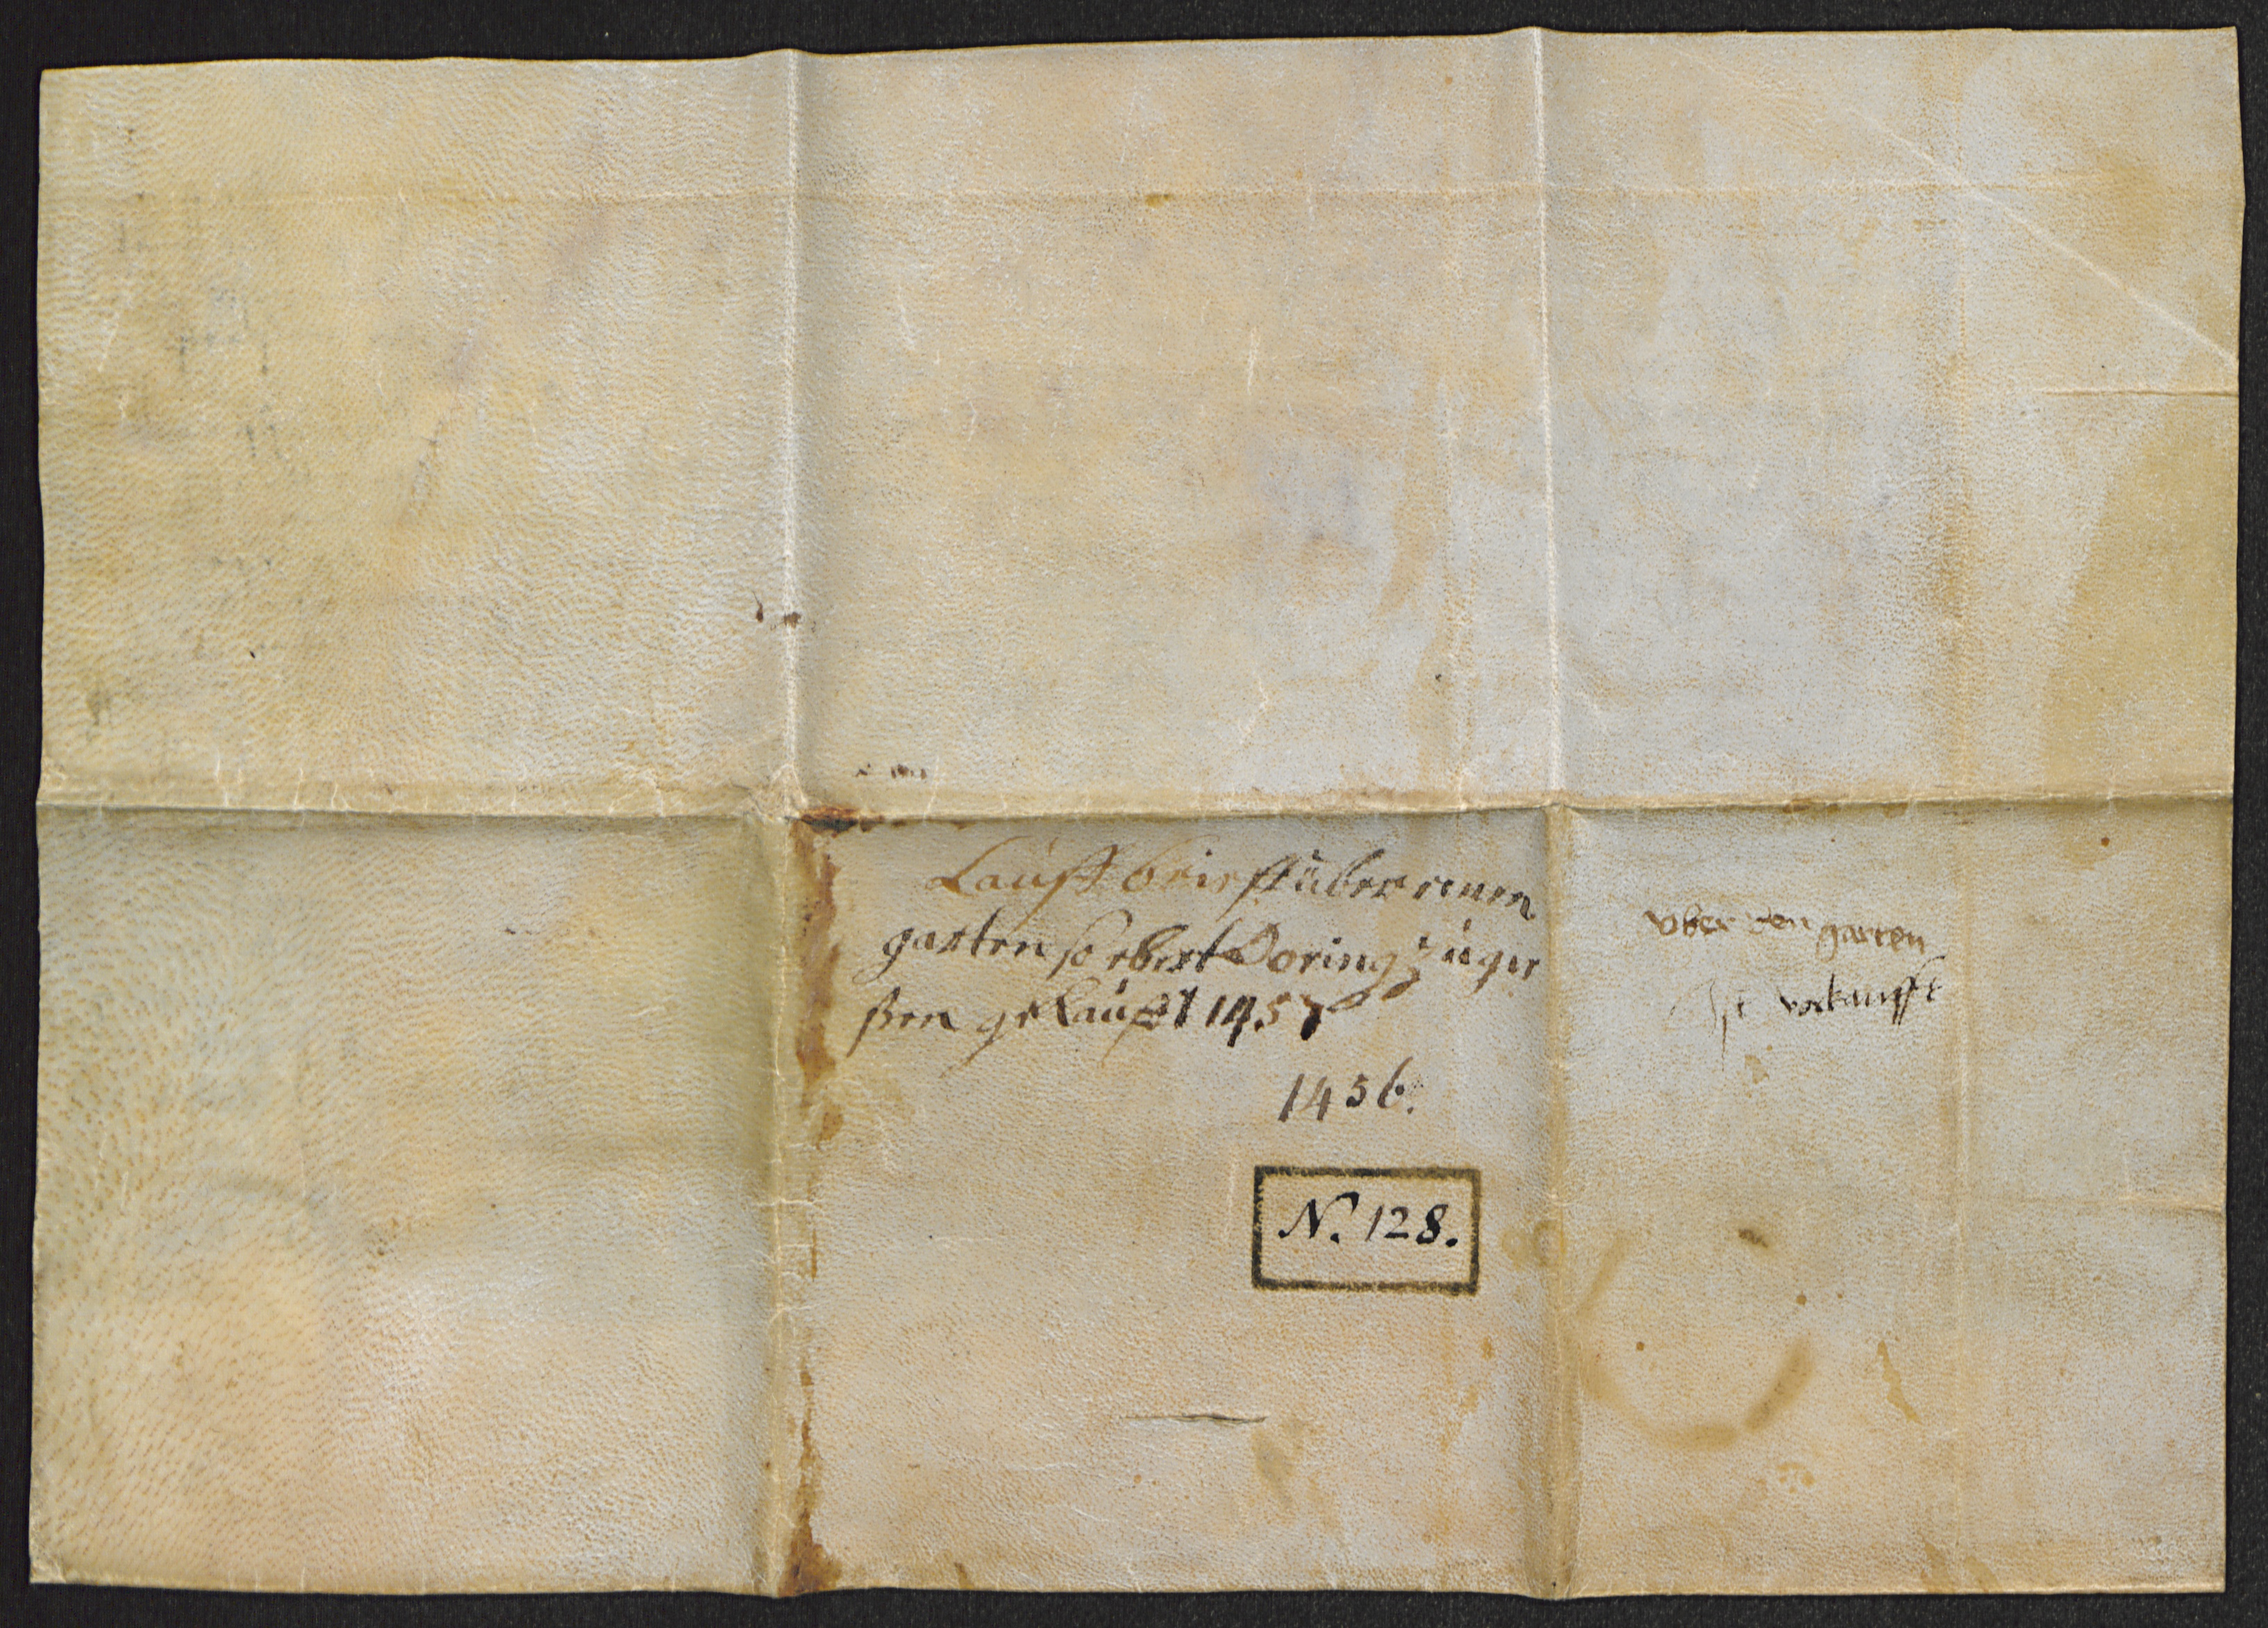 Kauff brieff über einen
garten so ebert Doring zu gie
ßen gekaufft 1457
1456.
N. 128.
vber den garten
Ist vorkaufft